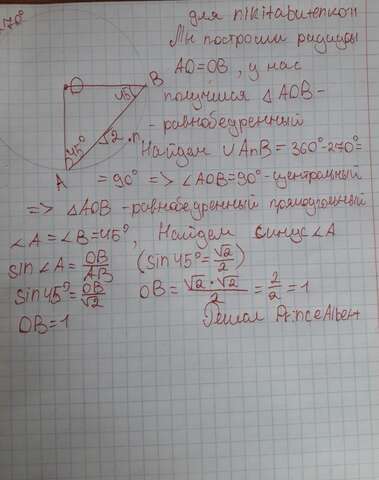 для nikitabutenkon
270°
Мы построим радиусы
AO=OB, у нас
получился △AOB -
- равнобедренный
Найдем ∪AnB = 360°-270°=
= 90° => ∠AOB=90°-центральный
=> △AOB -равнобедренный прямоугольный
∠A=∠B=45°, Найдем синус∠A
sin∠A = OB/AB (sin45°=√2/2)
sin45°= OB/√2 OB = √2·√2/2 = 2/2 = 1
OB=1 Решал PrinceAlbert
O
B
45°
√2
n
45°
A